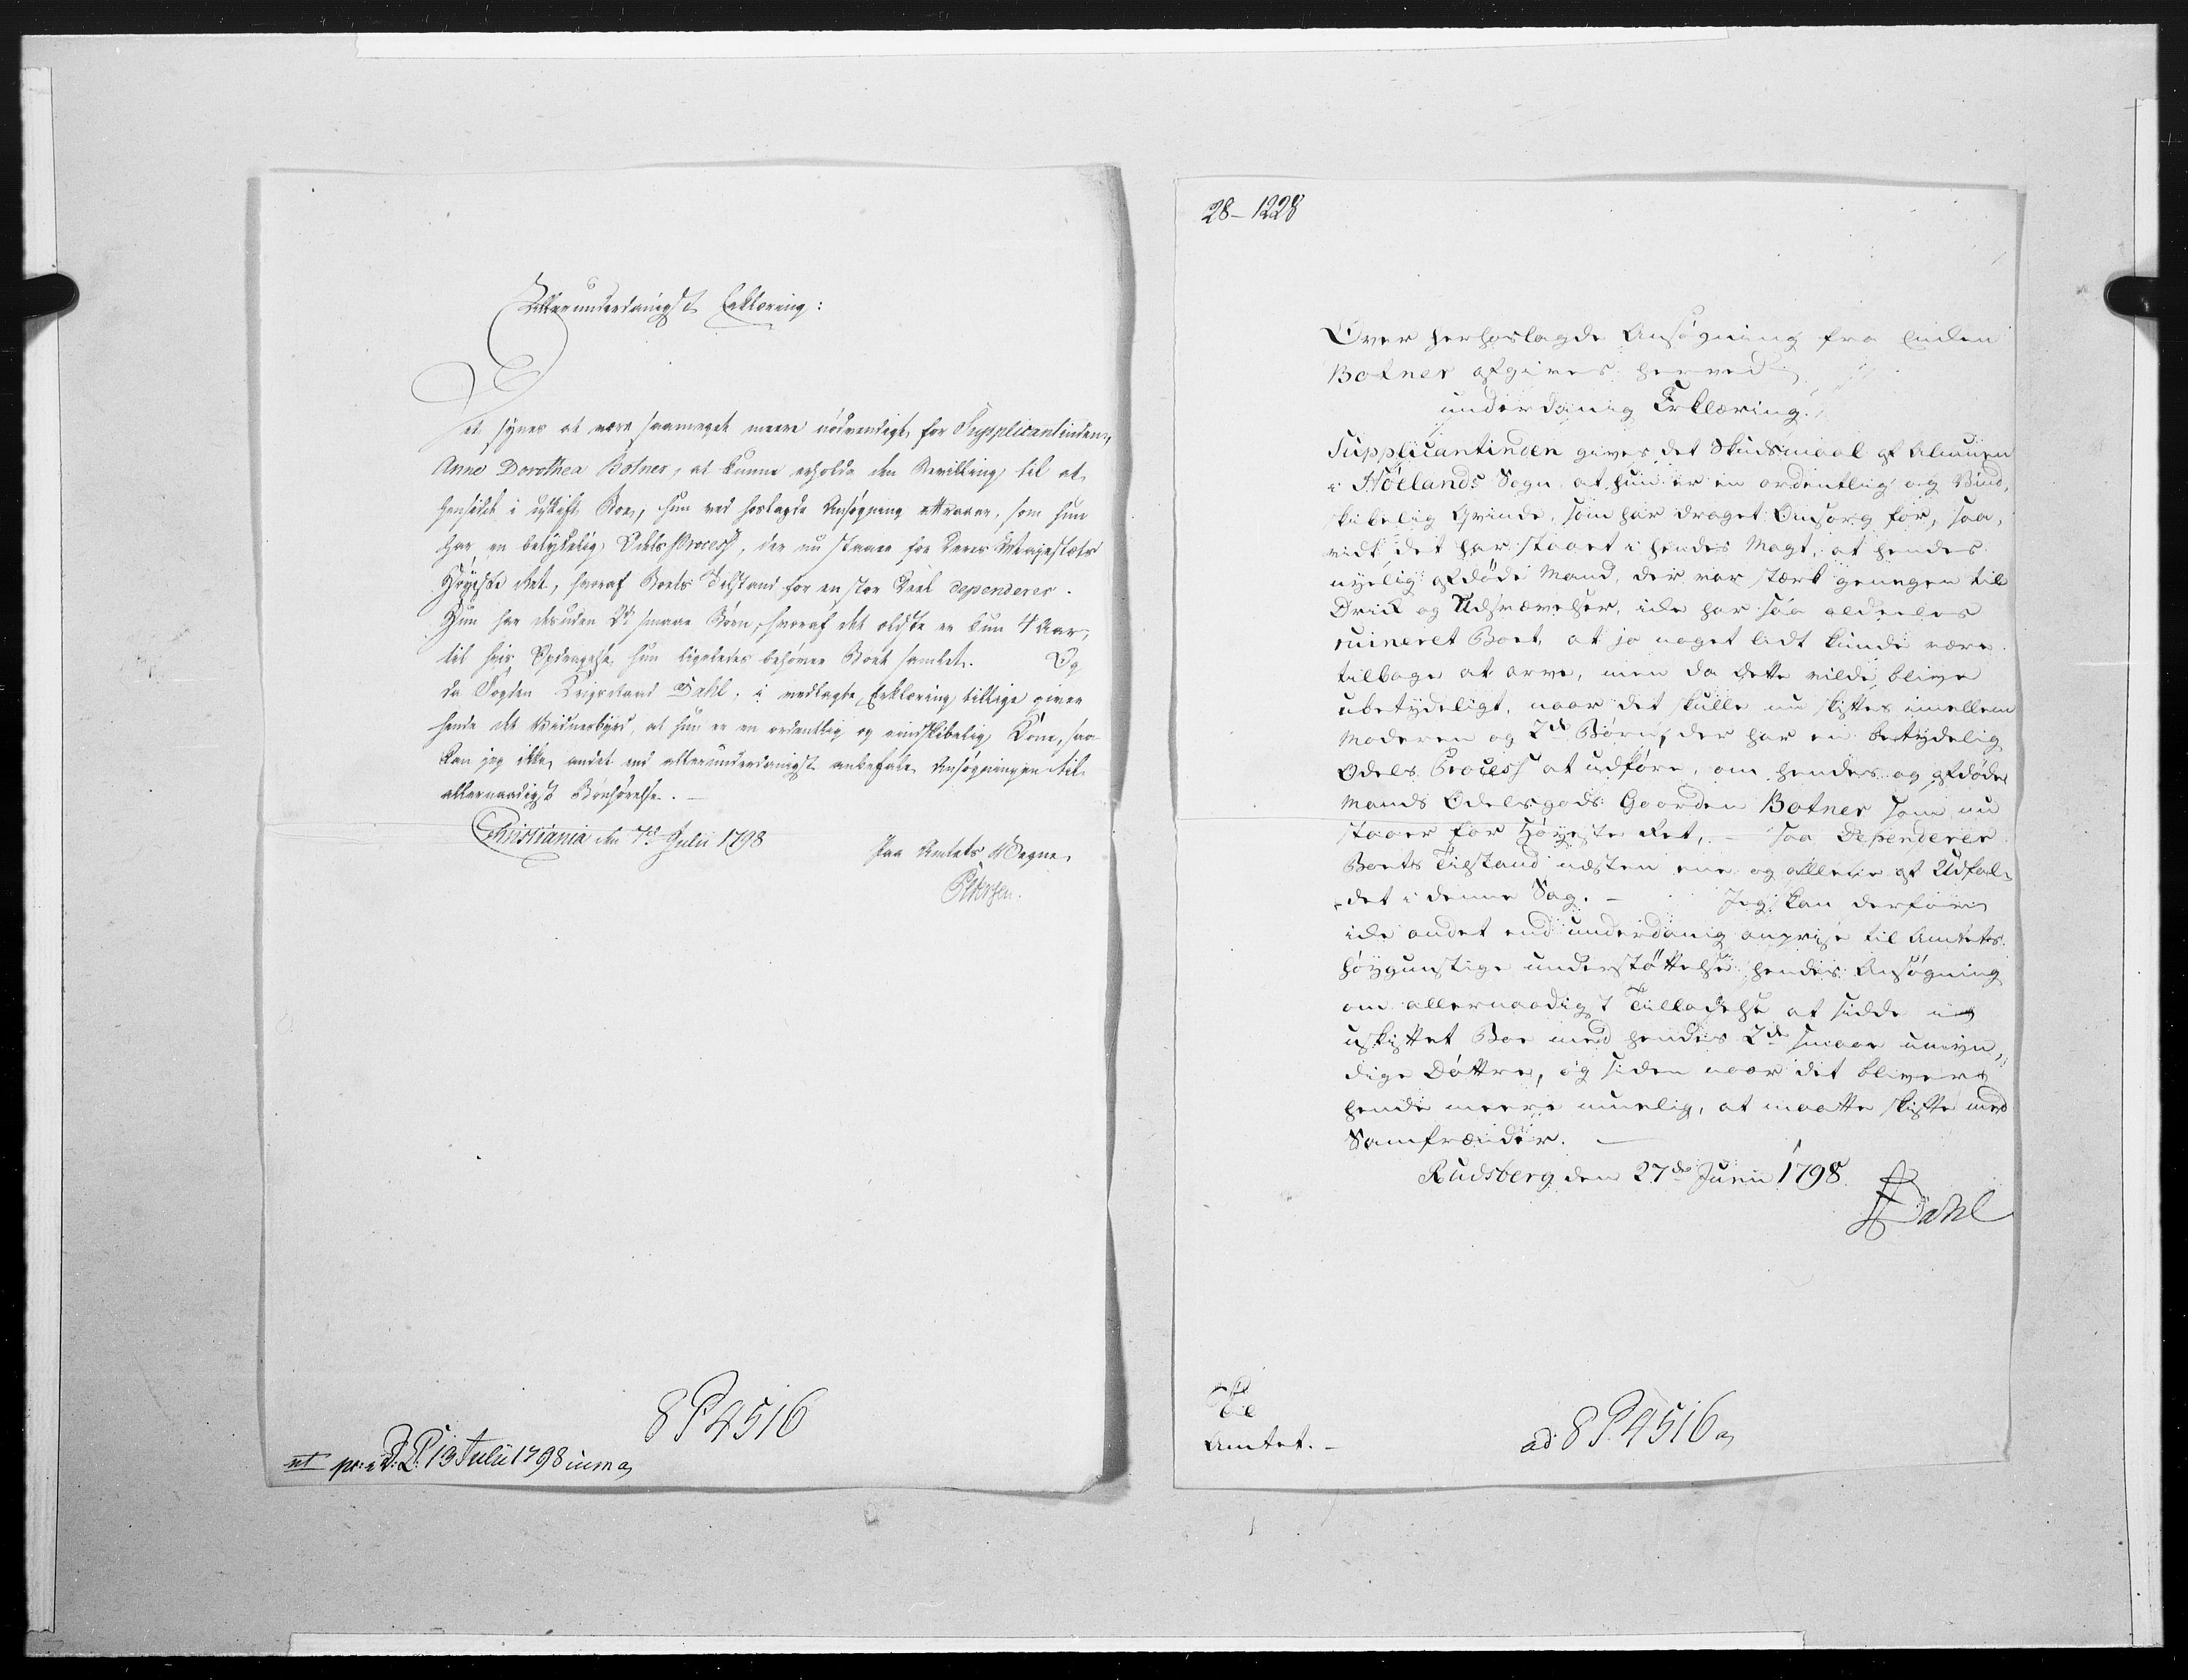 Allerunderdanigst Erklæring:
Det synes at være saameget meere nödvendigt for Supplicantinden,
Anne Dorothea Botner, at kunne erholde den Bevilling til at
hensidde i uskift Boe, hun ved hoslagde Ansøgning attraaer, som hun
har en betydelig Odels Process, der nu staaer for Deres Majestæts
Høyeste Ret, hvoraf Boets Tilstand for en stor Deel dependerer.
Hun har desuden 2de smaae Børn, hvoraf det ældste er kun 4 Aar,
til hvis Opdragelse hun ligeledes behøver Boet samlet. Og
da Fogden Krigsraad Dahl i vedlagte Erklæring tillige giver
hende det Vidnesbyrd, at hun er en ordentlig og vindskibelig Kone, saa
kan jeg ikke andet end allerunderdanigst anbefale Ansøgningen til
allernaadigst Bønhørelse. –
Christiania den 7de Julii 1798
Paa Amtets Vegne,
Petersen.
8 P 4516
nt pr: i D: C: 13 Julii 1798
28–1228
Over herhoslagde Ansøgning fra Enken
Botner afgives herved
underdanig Erklæring.
Supplicantinden gives det Skudsmaal af Almuen
i Hölands Sogn at hun er en ordentlig og Vind,
skibelig Qvinde, som har draget Omsorg for, saa,
vidt det har staaet i hendes Magt, at hendes
nyelig afdöde Mand, der var stærk genegen til
Drick og Udsvævelser, icke har saa aldeeles
ruineret Boet at jo noget lidt kunde være
tilbage at arve, men da dette vilde blive
ubetydeligt, naar det skulle nu skiftes imellem
Moderen og 2de Börn, der har en betydelig
Odels Process at udföre, om hendes og afdödes
Mands Odelsgods Gaarden Botner som nu
staaer for Höyeste Ret, – saa Dependerer
Boets Tilstand næsten ene og alleene af Udfal-
det i denne Sag. – Jeg kan derfore
icke andet end underdanig anprise til Amtets
höygunstige understöttelse hendes Ansögning
om allernaadigst Tilladelse at sidde i
uskiftet Boe med hendes 2de smaae umyn,
dige Döttre, og siden naar det bliver
hende meere muelig, at maatte skifte med
Samfrænder. –
Rudsberg den 27de Junii 1798.
Dahl
Til
Amtet. –
ad 8 P 4516